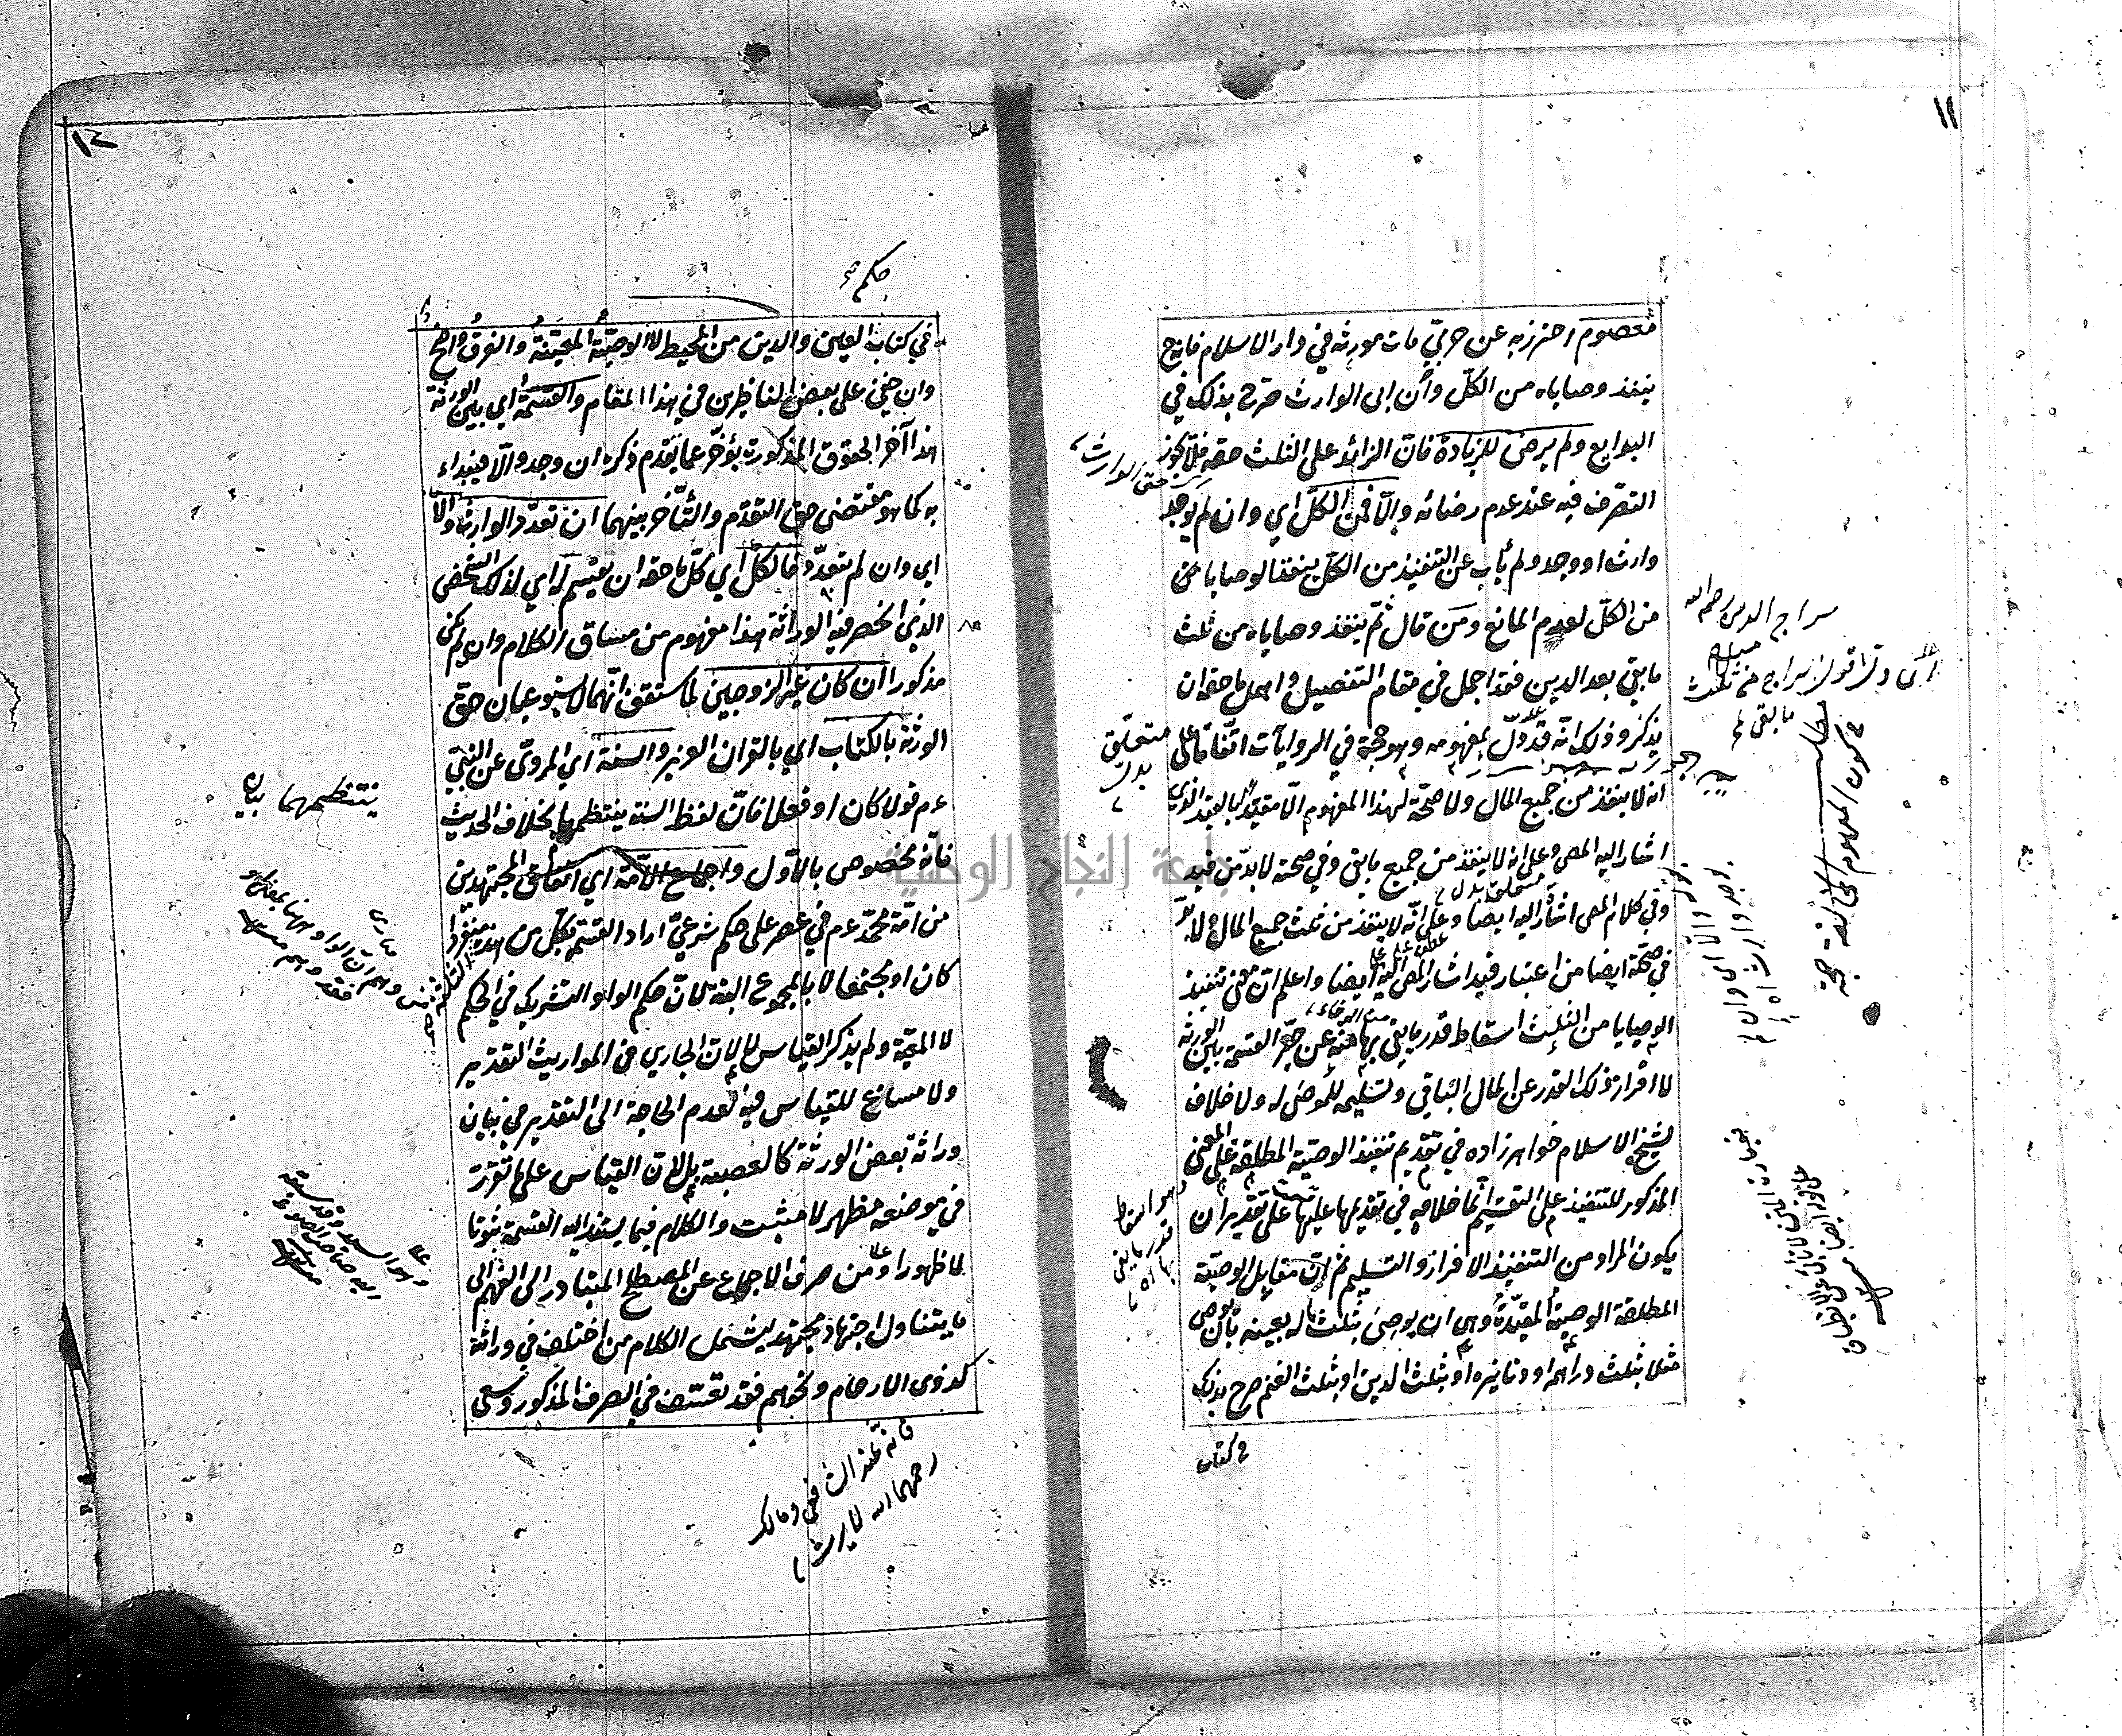 ١١
معصوم احترز به عن حربيّ مات مورثه في دار الاسلام فانه ح
ينفذ وصاياه من الكلّ وان ابى الوارث صرّح بذلك في
البدايع ولم يرض للزيادة فانّ الزائد على الثلث حقه فلا يجوز
التصرّف فيه عند عدم رضائه والّا فمن الكلّ اي وان لم يوجد
وارث او وجد ولم يأب عن التنفيذ من الكلّ ينفذ الوصايا من
من الكلّ لعدم المانع ومن قال ثمّ ينفذ وصاياه من ثلث
ما بقي بعد الدين فقد اجمل في مقام التفصيل واهمل ما حقه ان
يذكر وذلك انّه قد دلّ بمفهومه وهو حجة في الروايات اتفاقا على
انه لا ينفذ من جميع المال ولا صحّة لهذا المفهوم الّا مقيّدا بالقيد الذي
اشار اليه المص وعلى انه لا ينفذ من جميع ما بقي وفي صحته لا بدّ من قيد
وفي كلام المص اشار اليه ايضا وعلى انّه لا ينفذ من ثلث جميع المال ولا بدّ
في صحّته ايضا من اعتبار قيد اشار المص اليه ايضا واعلم انّ معنى تنفيذ
الوصايا من الثلث اسقاط قدر ما يفي بها منه عن حيّز القسمة بين الورثة
لا افراز ذلك القدر عن المال الباقي وتسليمه للموصى له ولا خلاف
لشيخ الاسلام خواهر زاده في تقديم تنفيذ الوصيّة المطلقة على المعنى
المذكور للتنفيذ على التقسيم انّما خلافه في تقديمها عليها على تقدير ان
يكون المراد من التنفيذ الافراز والتسليم ثم انّ مقابل الوصيّة
المطلقة الوصيّة المقيّدة وهي ان يوصي بثلث ما له بعينه بان يوصي
مثلا بثلث دراهمه او دنانيره او بثلث الدين او بثلث الغنم صرح بذلك
في كتاب
حق الوارث
متعلّق بدل
سراج الدين رحمه الله
ما بقي
متعلق بدل
هو اسقاط
قدر ما يفي
بها
١٢
في كتاب العين والدين من المحيط لا الوصيّة المعيّنة والفرق واضح
وان خفي على بعض الناظرين في هذا المقام والقسمة اي بين الورثة
هذا آخر الحقوق المذكورة يؤخّر عما تقدم ذكره ان وجد والّا فيبداء
به كما هو مقتضى حق التقدّم والتأخر بينهما ان تعدّد الوارث والّا
اي وان لم يتعدّد فالكل اي كلّ ما حقه ان يقسم له اي لذلك الشخص
الذي انحصر فيه الوراثة هذا مفهوم من مساق الكلام وان لم يكن
مذكورا ان كان غير الزوجين لما ستقف انّهما لا يستوعبان حقّ
الورثة بالكتاب اي بالقران العزيز والسنة اي المروىّ عن النبيّ
ءم قولا كان او فعلا فانّ لفظ السنة ينتظمها بخلاف الحديث
فانّه مخصوص بالاوّل واجماع الامّة اي اتفاق المجتهدين
من امّة محمّد ءم في عصر على حكم شرعيّ اراد القسمة بكلّ من هذه منفردا
كان او مجتمعا لا بالمجموع البتة لانّ حكم الواو التشريك في الحكم
لا المعيّة ولم يذكر القياس لا لانّ الجاري في المواريث التقدير
ولا مساغ للقياس فيه لعدم الحاجة الى التقدير في بيان
وراثة بعض الورثة كالعصبة بل لانّ القياس على ما تقرّر
في موضعه مظهر لا مثبت والكلام فيما يستند اليه القسمة ثبوتا
لا ظهورا ومن صرف الاجماع عن المصطلح المتبادر الى الفهم الى
ما يتناول اجتهاد مجتهد ليشمل الكلام من اختلف في وراثته
كذوى الارحام ونحوهم فقد تعسّف في الصرف المذكور وسعى
ينتظمهما بيان
فانّه عند الشافعي ومالك
رحمهما الله لا يرث
جامعة النجاح الوطنية